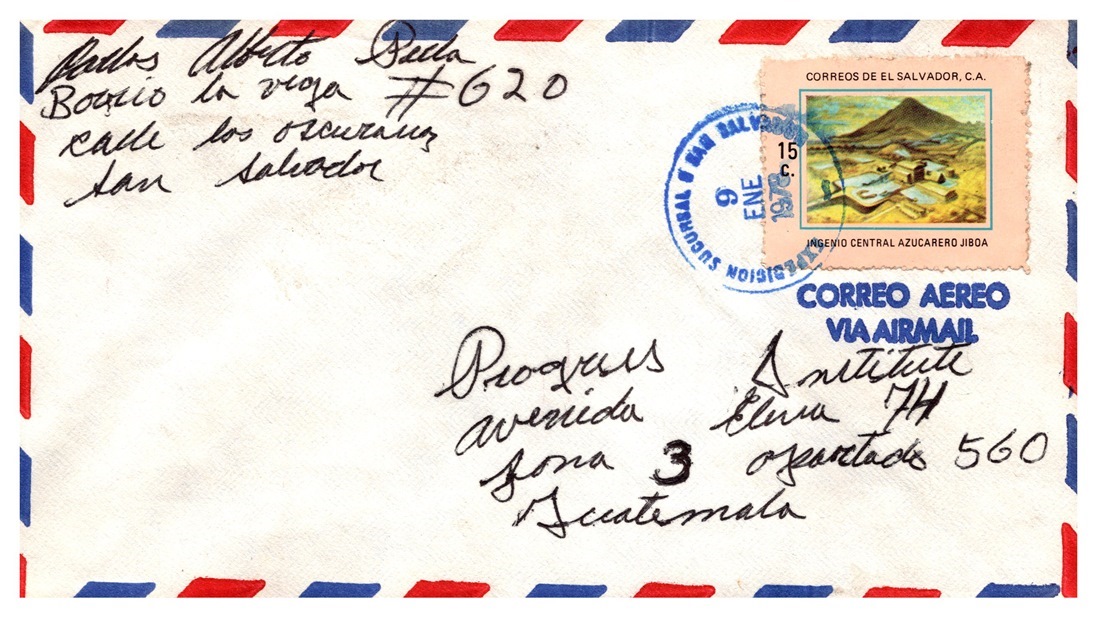 Carlos Alberto
Barrio la vega #620
calle los oscuranas
San Salvador
CORREOS DE EL SALVADOR, C.A.
15
C.
INGENIO CENTRAL AZUCARERO JIBOA
EXPEDICION SUCURSAL # SAN SALVADOR
9
ENE
CORREO AEREO
VIA AIRMAIL
Progress Institute
avenida Elena
Zona 3 apartado 560
Guatemala